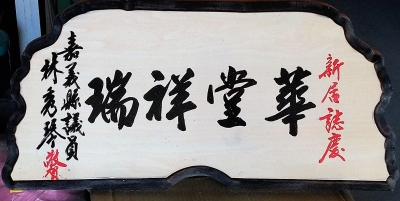 新居誌慶
華堂祥瑞
嘉義縣議員
林秀琴 敬賀